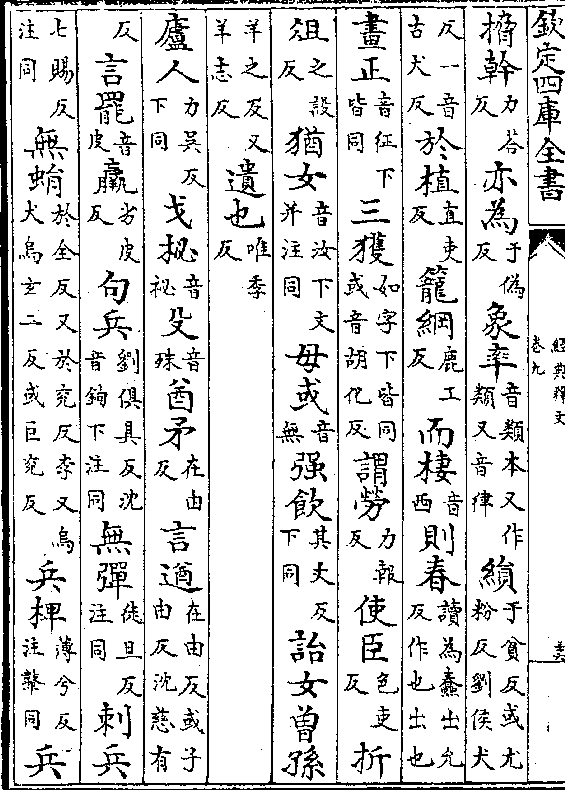 欽定四庫全書
經典釋文
卷九
搚幹力荅反亦為于偽反象率音類本又作類又音律縜于貧反或尤粉反劉侯犬
反一音古犬反於植直吏反籠綱鹿工反而棲音西則春讀為蠢出允反作也出也
畫正音征下皆同三獲如字下皆同或音胡化反謂勞力報反使臣色吏反折
俎之設反猶女音汝下文并注同毋或音無强飲其丈反下同詒女曾孫
羊之反又羊志反遺也唯季反
廬人力吳反下同戈柲音祕殳音殊酋矛在由反言遒在由反或子由反沈慈有
反言罷音皮羸劣皮反句兵劉俱具反沈音鉤下注同無彈徒旦反注同刺兵
七賜反注同無蜎於全反又於兖反李又烏犬烏玄二反或巨兖反兵椑薄兮反注鼙同兵